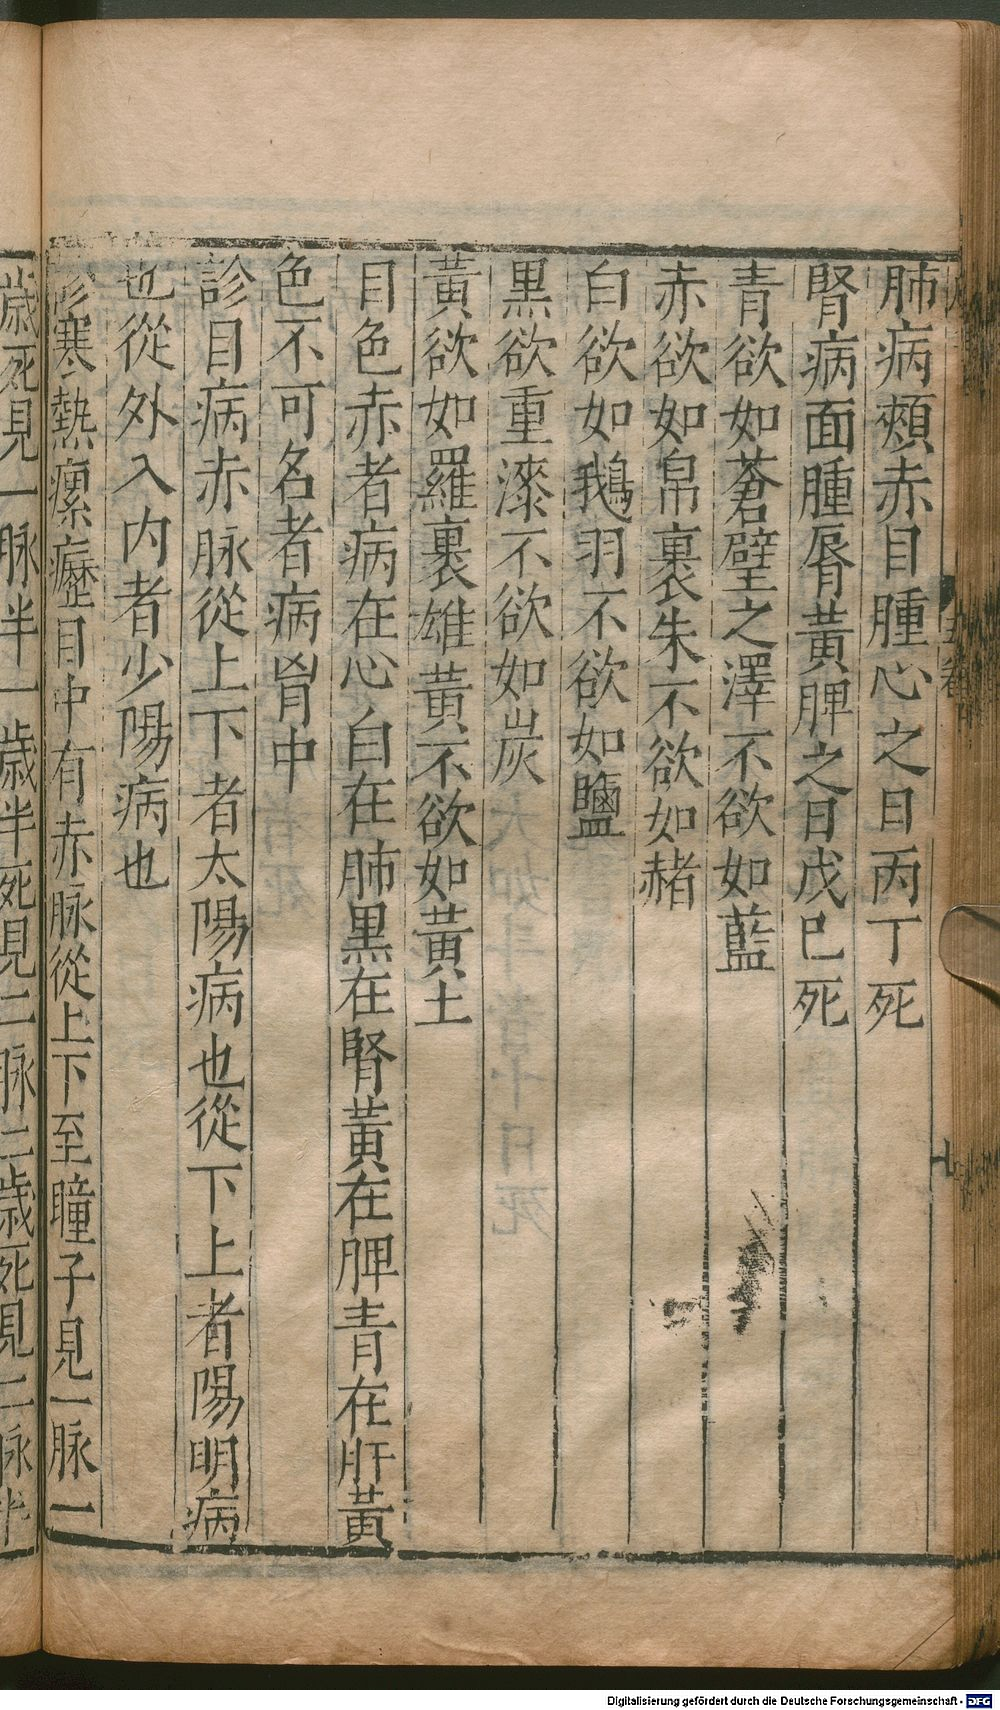 肺病頰赤目腫心之日丙丁死
腎病面腫脣黃脾之日戊巳死
青欲如蒼璧之澤不欲如藍
赤欲如帛裹朱不欲如赭
白欲如鵝羽不欲如鹽
黑欲重漆不欲如炭
黃欲如羅裹雄黃不欲如黃土
目色赤者病在心白在肺黑在腎黃在脾青在肝黃
色不可名者病胷中
診目病赤脉從上下者太陽病也從下上者陽明病
也從外入內者少陽病也
診寒熱瘰癧目中有赤脉從上下至瞳子見一脉一
歲死見一脉半一歲半死見二脉二歲死見二脉半
Digitalisierung gefördert durch die Deutsche Forschungsgemeinschaft - DFG